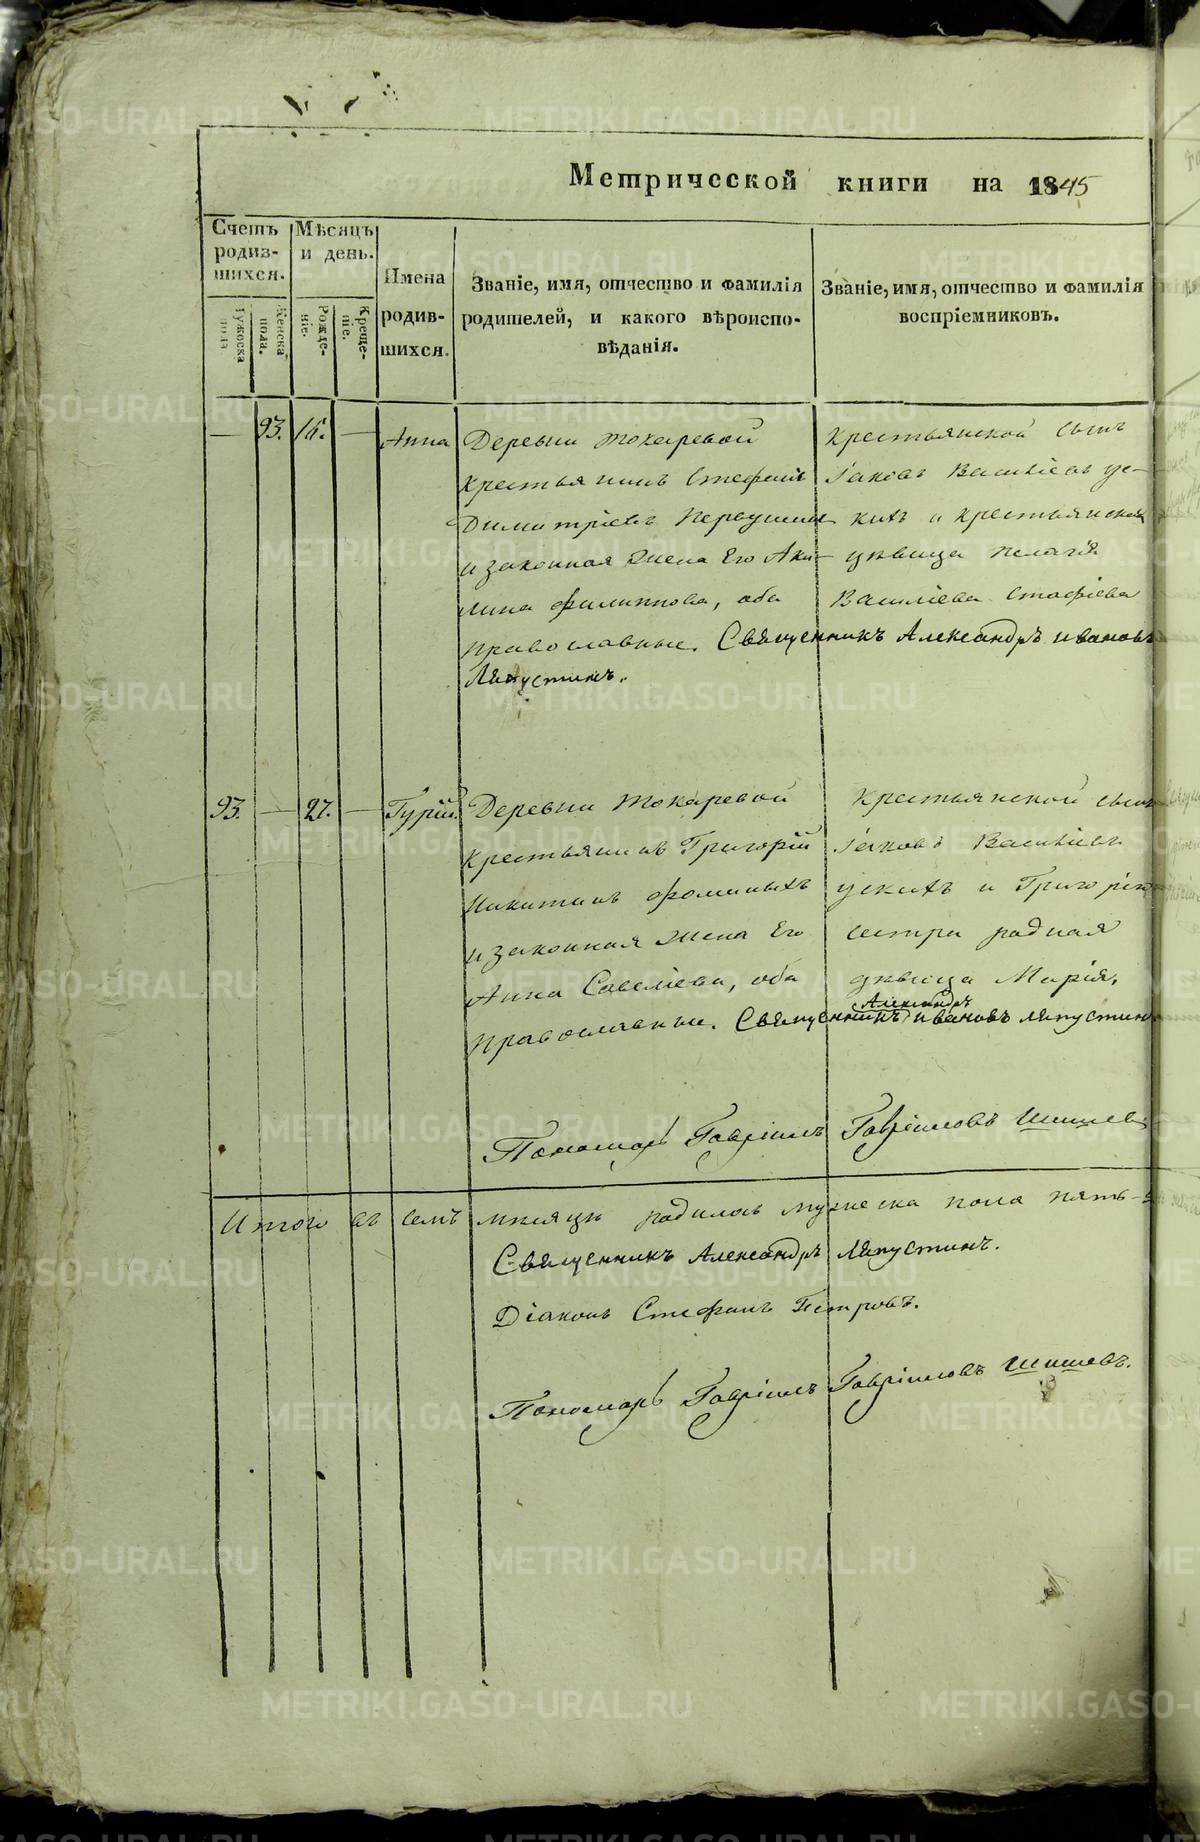 Метрической книги на 1845
Счетъ родив-шихся.
Мѣсяцъ и день.
Имена родив-шихся.
Званіе, имя, отчество и фамилія родителей, и какого вѣроиспо-вѣданія.
Званіе, имя, отчество и фамилія воспріемниковъ.
Мужеска пола
Женска пола.
Рожде-ніе.
Креще-ніе.
— 93. 16. — Анна
Деревни Токаревой
крестьянинъ Стефанъ
Димитріевъ Первушин
и законная жена Его Аки-
лина Филиппова, оба
православные. Священникъ Александръ Ивановъ
Ляпустинъ.
Крестьянской сынъ
Іаковъ Василіевъ Ус-
кихъ и крестьянская
дѣвица Пелагія
Василіева
93. — 27. — Гурій.
Деревни Токаревой
крестьянинъ Григорій
Никитинъ Фоминыхъ
и законная жена Его
Анна Савеліева, оба
Православные. Священникъ Александръ Ивановъ Ляпустинъ
Крестьянской сынъ
Іаковъ Василіевъ
Ускихъ и Григорія
сестра родная
дѣвица Марія.
Пономарь Гавріилъ Гавріиловъ Шишевъ
Итого въ семъ мѣсяцѣ родилось мужеска пола пять-
Священникъ Александръ Ляпустинъ.
Діаконъ Стефанъ Петровъ.
Пономарь Гавріилъ Гавріиловъ Шишевъ.
METRIKI.GASO-URAL.RU